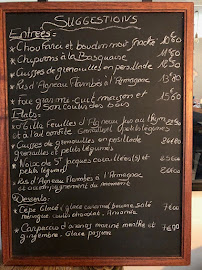 SUGGESTIONS
Entrées:
* Choufarci et boudin noir 10€80
* Chipirons à la Basquaise 11€50
* Cuisses de grenouilles en persillade 12€50
* Ris d'Agneau Flambés à l'Armagnac 13€80
* Foie gras mi-cuit maison et 15€60
Plats:
d'Agneau jus au thym
à l'ail confite légumes
* Cuisses de grenouilles en persillade
grenailles et petits légumes
* Noix de St Jacques et
petits légumes
* Ris d'Agneau Flambés à l'Armagnac
et accompagnement du moment
Desserts:
* Cepe Glacé : glace caramel beurre salé
meringue coulis chocolat. 7€00
* Carpaccio d'oranges mariné menthe et 7€00
gingembre. Glace